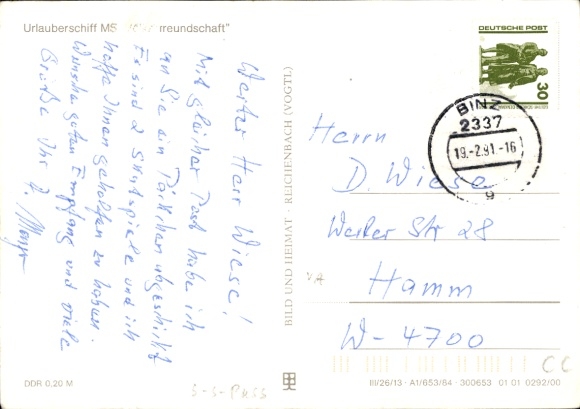 Urlauberschiff MS "Völkerfreundschaft"
Werter Herr Wiese!
Mit gleicher Post habe ich
an Sie ein Päckchen abgeschickt
Es sind 2 Skatspiele und ich
hoffe Ihnen geholfen zu haben.
Wünsche guten Empfang und viele
Grüße Ihr
DEUTSCHE POST
30
BINZ
2337
19.-2.91.-16
g
Herrn
D. Wiese
Werler Str 28
Hamm
W-4700
BILD UND HEIMAT · REICHENBACH (VOGTL)
VA
DDR 0,20 M
S-S-PASS
III/26/13 · A1/653/84 · 300653 01 01 0292/00
CC